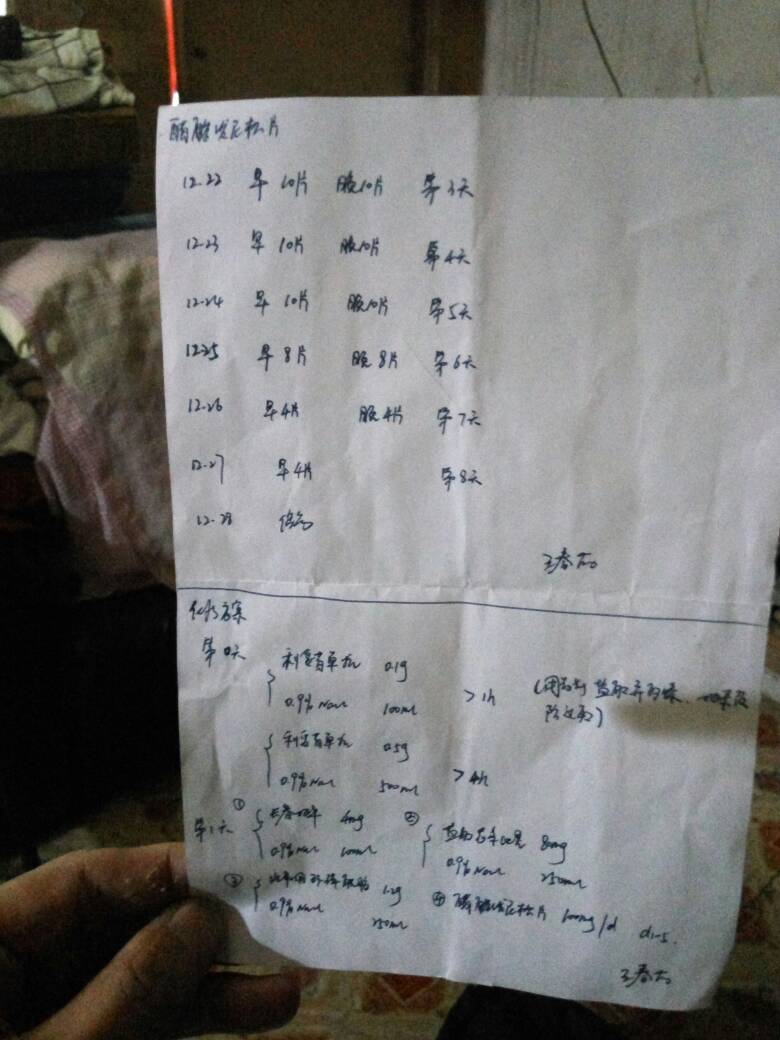 醋酸泼尼松片
12.22 早 10片 晚10片 第3天
12.23 早 10片 晚10片 第4天
12.24 早 10片 晚10片 第5天
12.25 早 8片 晚 8片 第6天
12.26 早4片 晚4片 第7天
12.27 早4片 第8天
12.28 停药
化疗方案
第0天
利妥昔单抗 0.1g
0.9% NaCl 100ml >1h
利妥昔单抗 0.5g
0.9% NaCl 500ml >4h
第1天 ① 4mg ② 80mg
0.9% NaCl 100ml 0.9% NaCl 250ml
③ 注射用环磷酰胺 1.2g ④ 醋酸泼尼松片 100mg/d d1-5.
0.9% NaCl 250ml